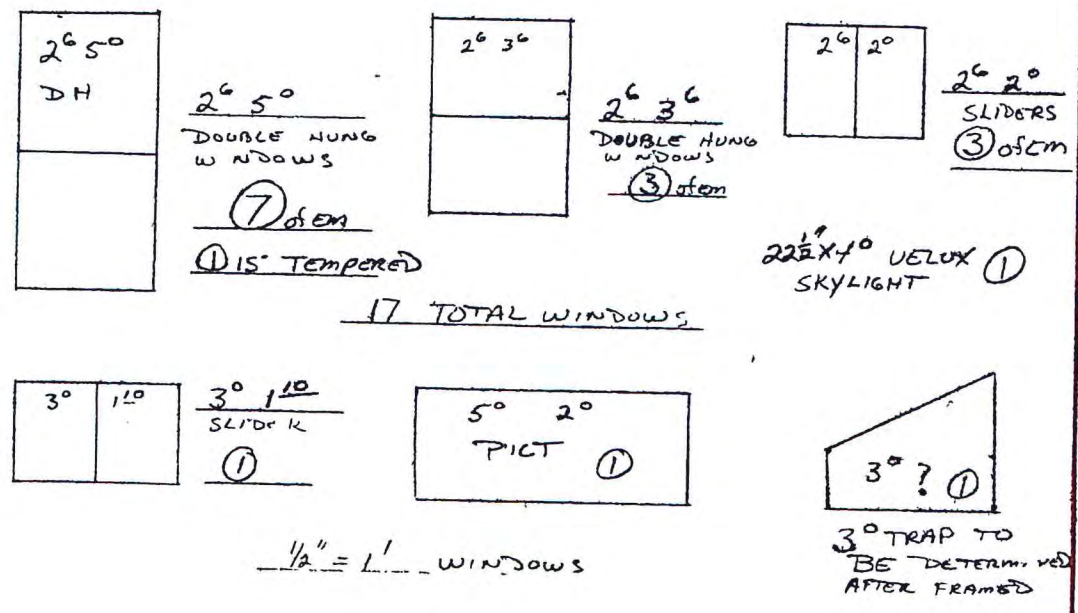 2⁶ 5⁰
DH
2⁶ 5⁰
DOUBLE HUNG
W NDOWS
7 of EM
1 IS TEMPERED
2⁶ 3⁶
2⁶ 3⁶
DOUBLE HUNG
W NDOWS
3 of em
2⁶ 2⁰
2⁶ 2⁰
SLIDERS
3 of Em
22½" X 4⁰ VELUX 1
SKYLIGHT
17 TOTAL WINDOWS
3⁰ 1¹⁰
3⁰ 1¹⁰
SLIDER
1
5⁰ 2⁰
PICT 1
3⁰ ? 1
3⁰ TRAP TO
BE DETERMINED
AFTER FRAMED
1/2" = 1' WINDOWS